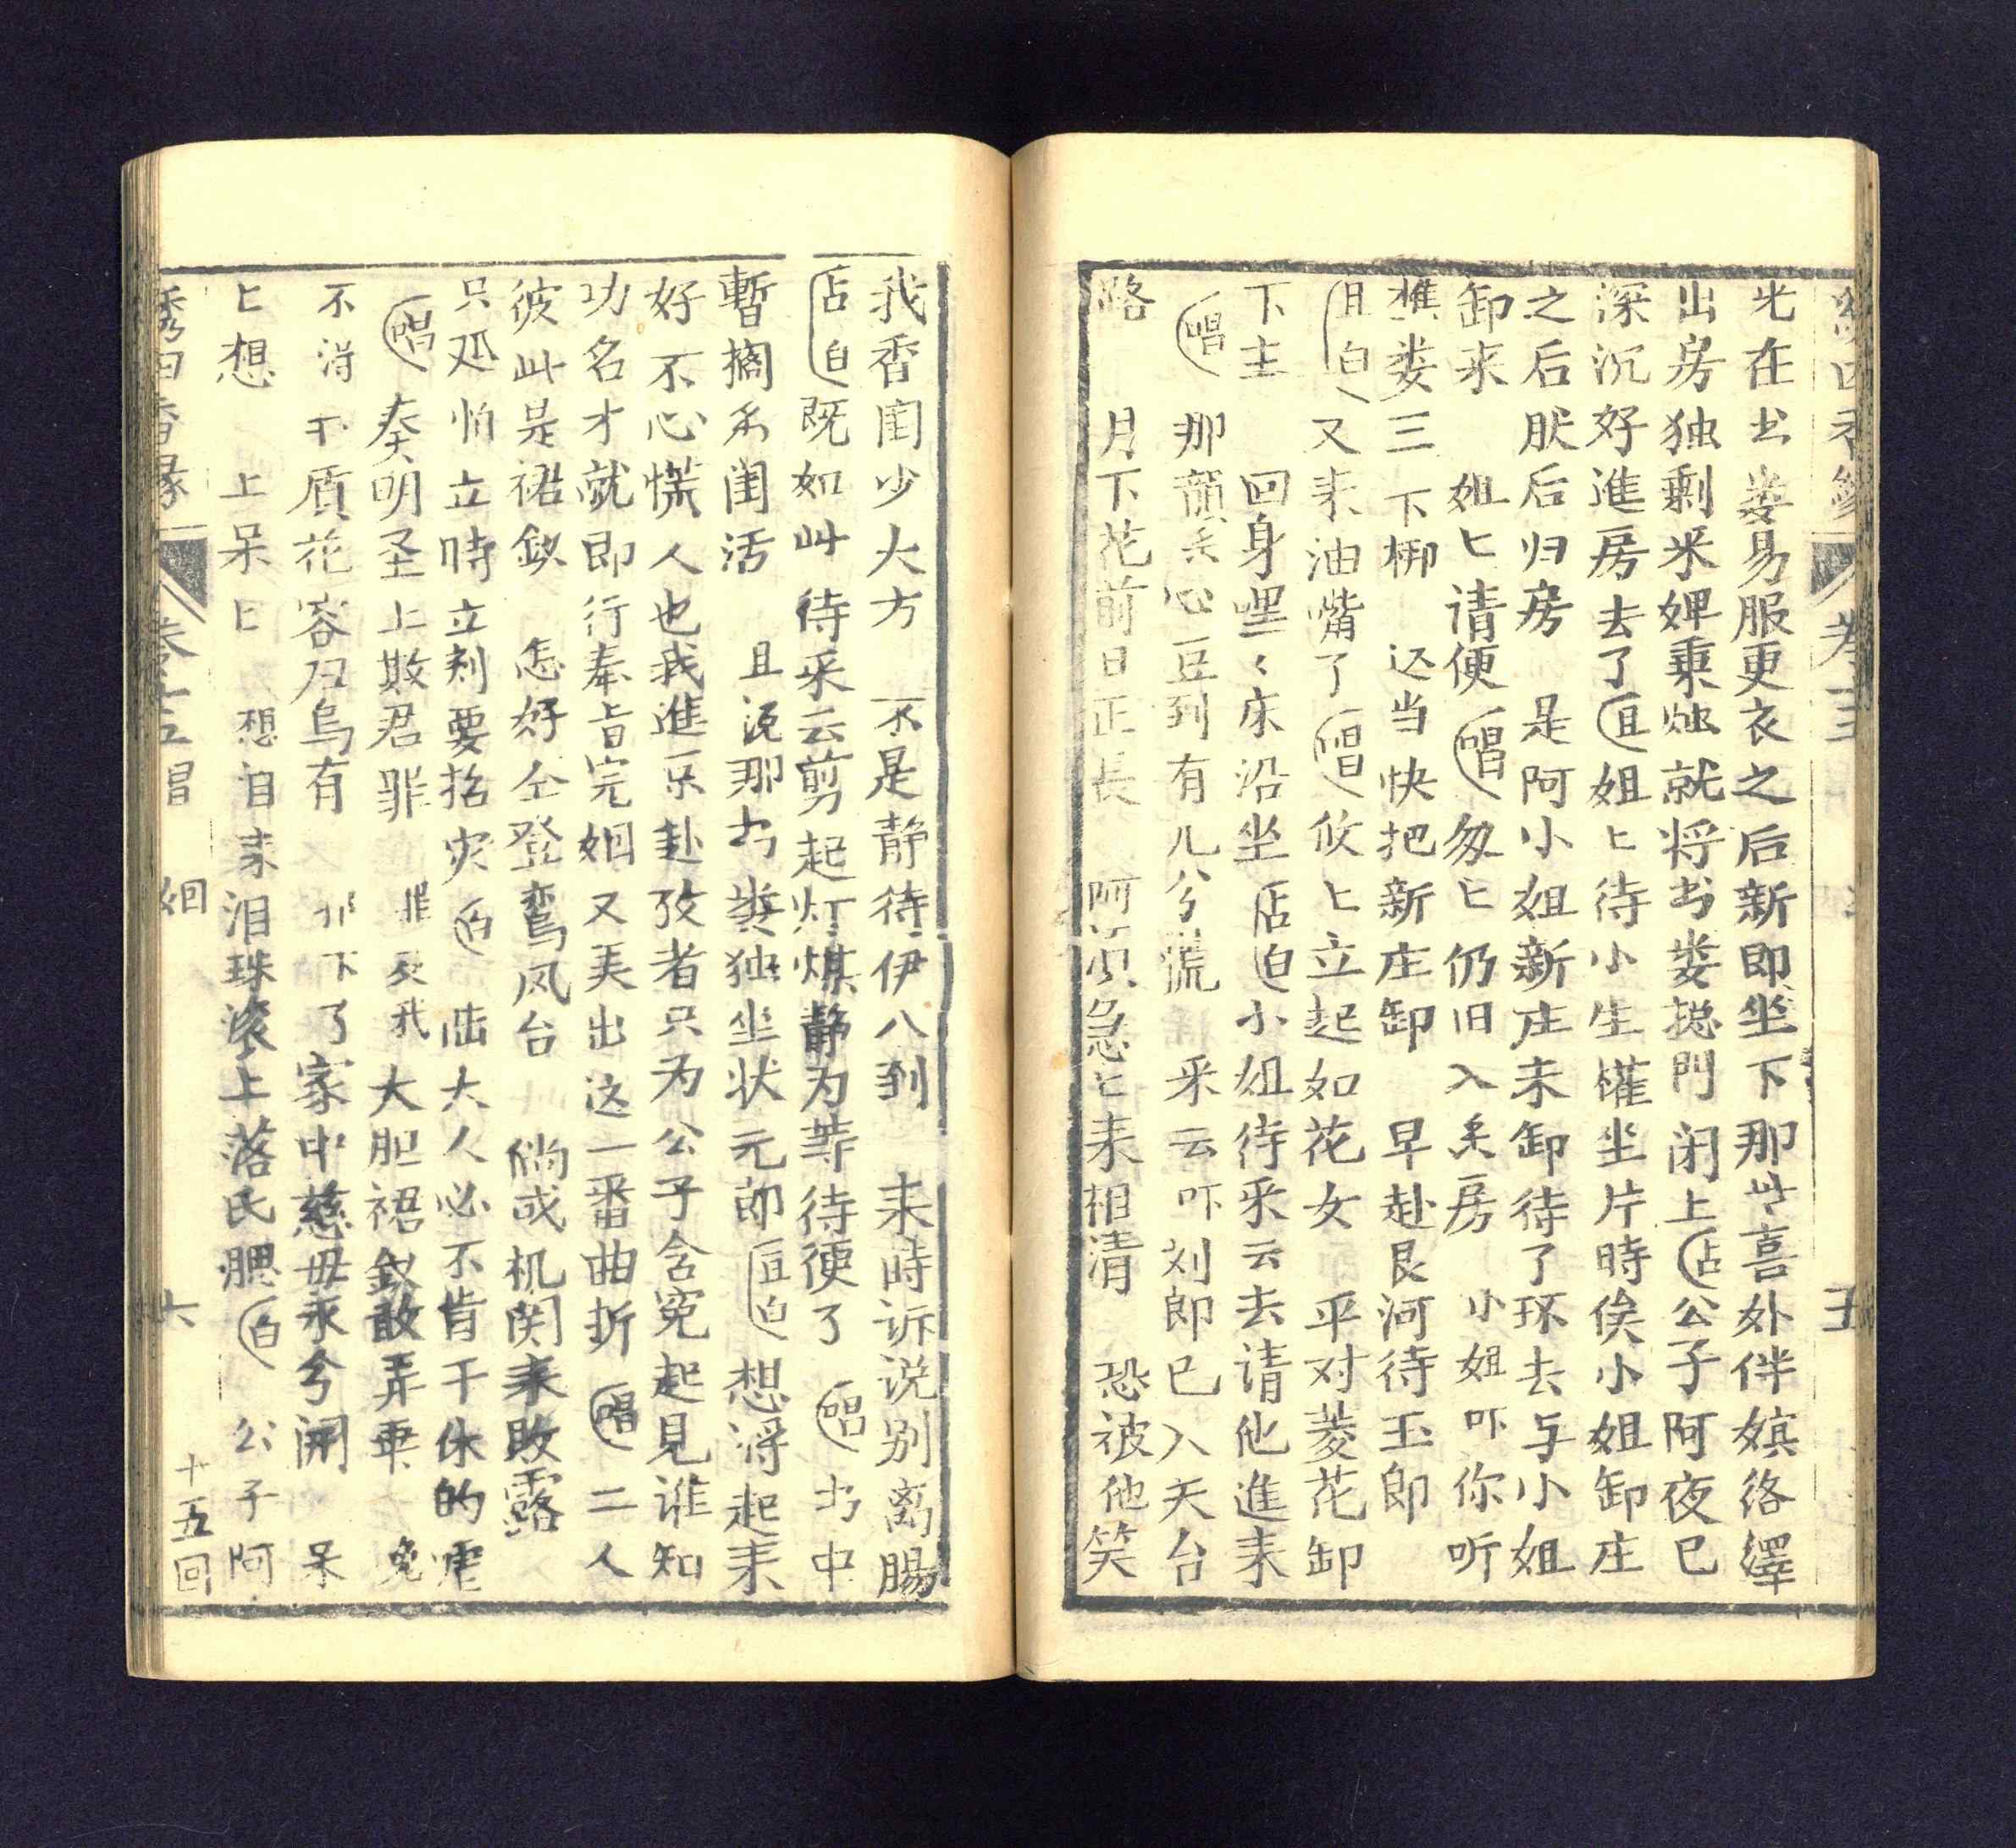 光在书娄易服更衣之后新即坐下那此喜外伴嫔络繹
出房独剩采婢秉烛就将书娄搃門闭上占公子阿夜已
深沉好進房去了旦姐匕待小生權坐片時俟小姐卸庄
之后肰后归房 是阿小姐新庄未卸待了环去与小姐
卸来 姐匕请便唱匆匕仍旧入房 小姐吓你听
樵娄三下梆 还当快把新庄卸 早赴艮河待玉郎
旦白又来油嘴了唱攸匕立起如花女 平对菱花卸
下主 回身嘿々床沿坐占白小姐待采云去请他進来
唱 那顔氏心豆到有儿兮慌 采云吓刘郎已入天台
路 月下花前日正長 阿須急匕来相清 恐被他笑
我香闺少大方 不是静待伊人到 来時诉说别离腸
占白既如此待采云剪起灯煤静为等待便了唱书中
暫擱氏闺活 且说那书娄独坐状元郎旦白想淂起来
好不心慌人也我進京赴攷者只为公子含寃起見谁知
功名才就即行奉旨完姻又美出这一番曲折唱二人
彼此是裙釵 怎好仝登鸾凤台 倘或机関来敗露
只恐怕立時立刻要招灾白陆大人必不肯干休的
唱奏明圣上欺君罪 罪及我大胆裙釵敢弄乖
不淂 質花容归烏有 了家中慈毋永兮開 呆
匕想 上呆 想自来泪珠滚上落氏腮白公子阿
卷十五唱 姻 六 十五回